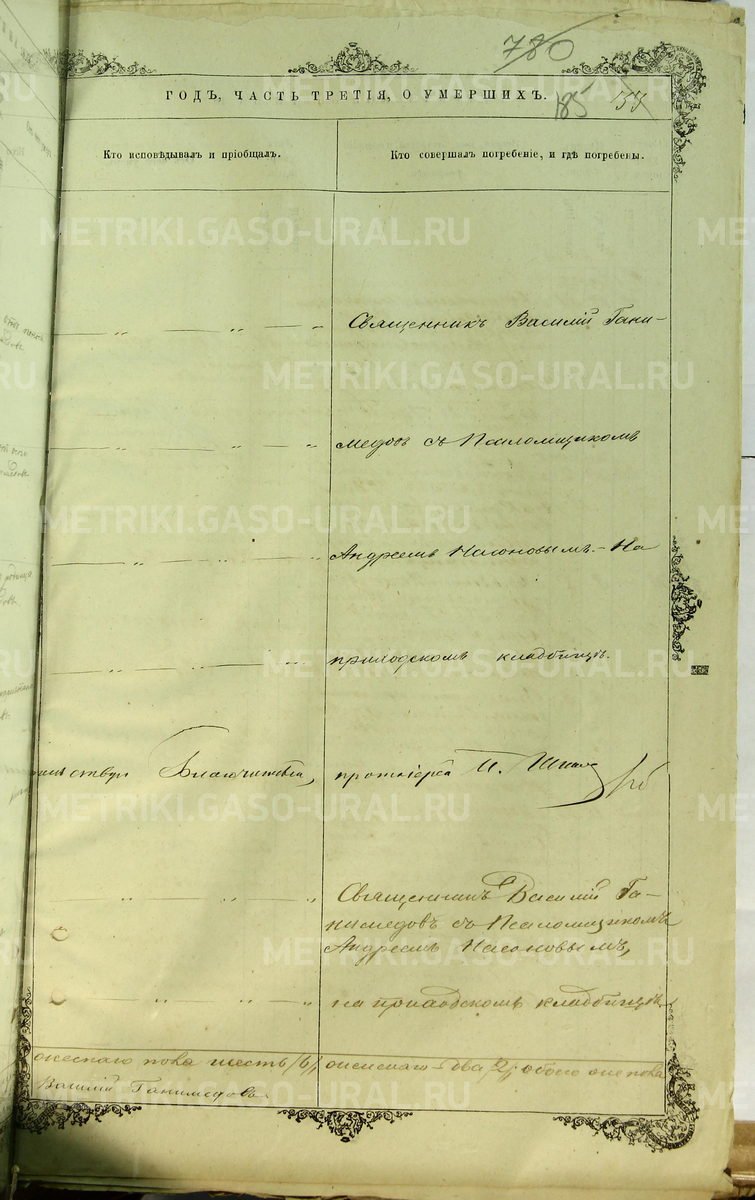 780
ГОДЪ, ЧАСТЬ ТРЕТІЯ, О УМЕРШИХЪ.
185
Кто исповѣдывалъ и пріобщалъ.
Кто совершалъ погребеніе, и гдѣ погребены.
Священникъ Василій Гани-
медовъ съ Псаломщикомъ
Андреемъ Насоновымъ. На
приходскомъ кладбищѣ.
Благочиннаго, протоіерей П.
Священникъ Василій Га-
нимедовъ съ Псаломщикомъ
Андреемъ Насоновымъ,
на приходскомъ кладбищѣ
женскаго пола шесть /6/,
женскаго два 2, обоего пола
Василій Ганимедовъ
METRIKI.GASO-URAL.RU